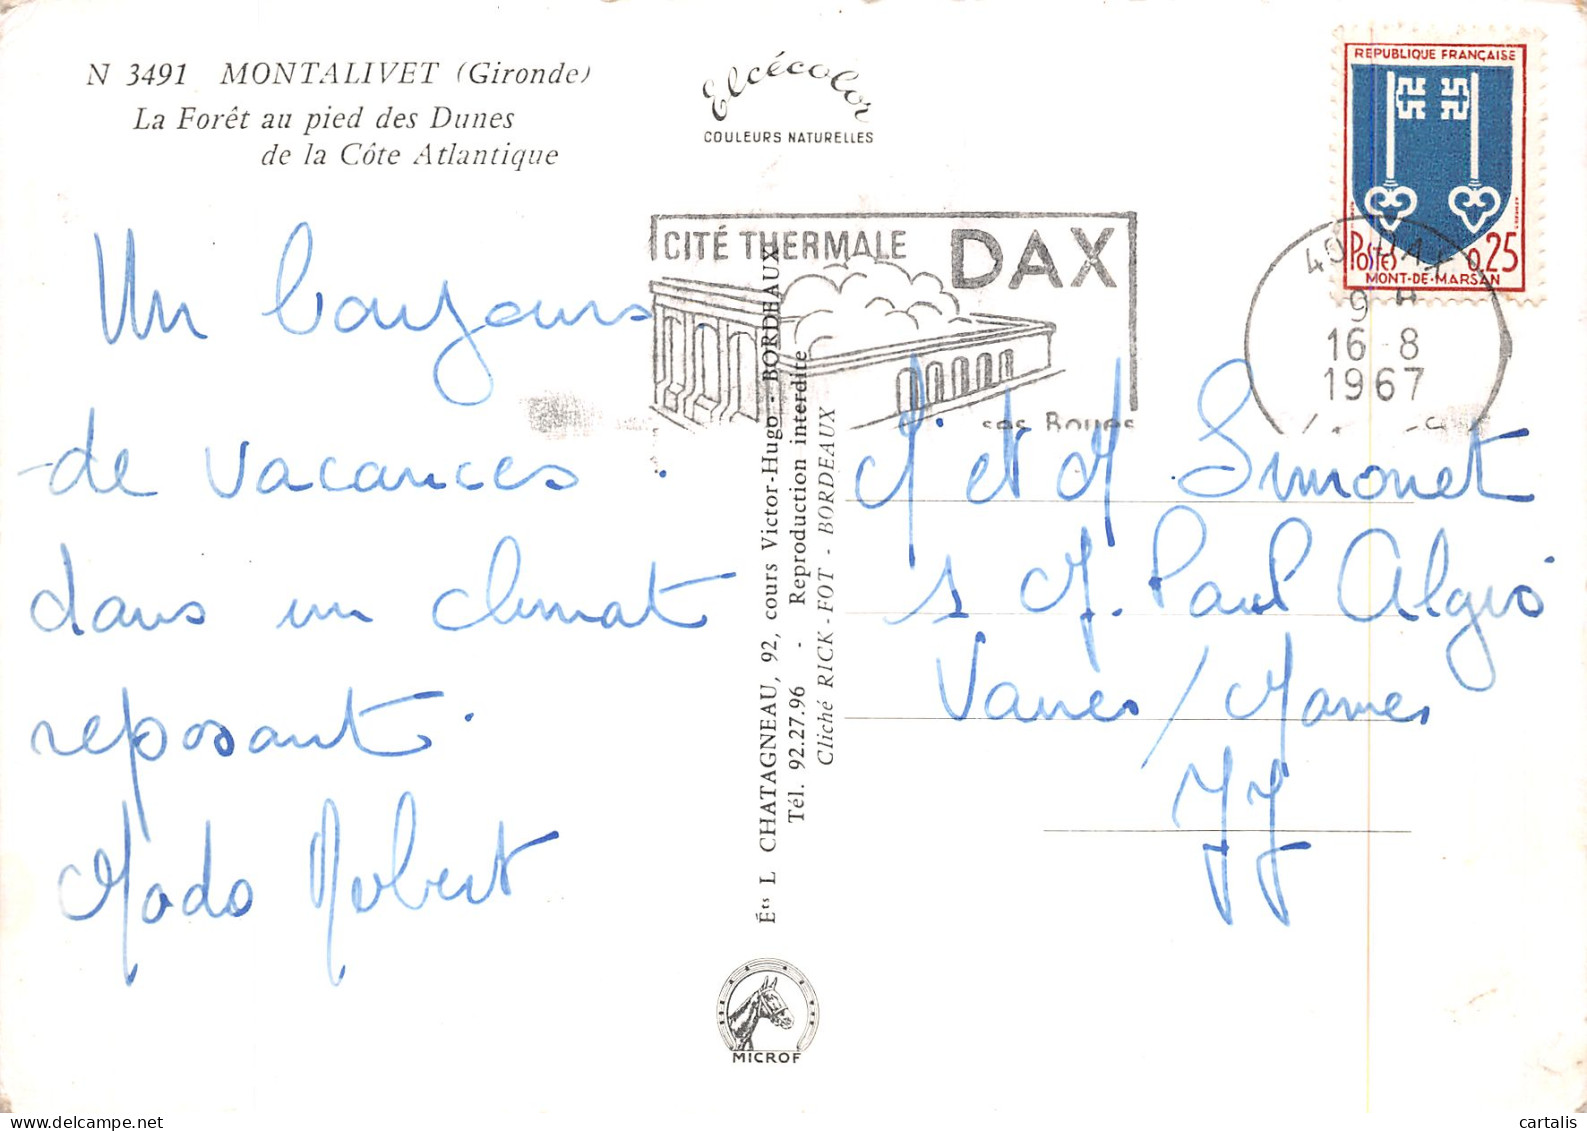 N 3491 MONTALIVET (Gironde)
La Forêt au pied des Dunes
de la Côte Atlantique
Elcécolor
COULEURS NATURELLES
REPUBLIQUE FRANÇAISE
POSTES 0,25
MONT-DE-MARSAN
CITÉ THERMALE DAX
40 DAX
9 H
16-8
1967
Un bonjour
de vacances
dans un climat
reposant.
Mado Robert
M et M Simonet
1 Paul Algis
Vanves / Marnes
77
Éts L CHATAGNEAU, 92, cours Victor-Hugo - BORDEAUX
Tél. 92.27.96 - Reproduction interdite
Cliché RICK-FOT - BORDEAUX
MICROF
cartalis